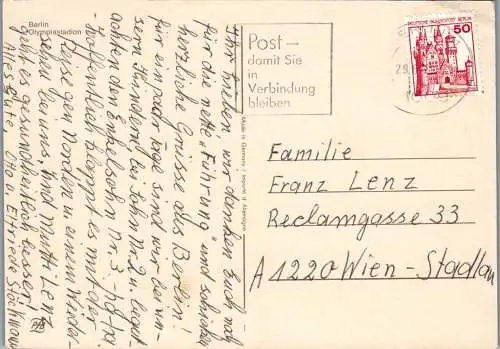 Berlin
Olympiastadion
Ihr Lieben, wir danken Euch noch
für die nette "Führung" und schicken
herzliche Grüsse aus Berlin!
für ein paar Tage sind wir bei un-
sern Kindern bei Sohn Nr. 2 u. begut-
achten den Enkelsohn Nr. 3.
Hoffentlich klappt es mit der
Reise gen Norden in einem
sehen bei uns. Und Mutti Lenz
geht es gesundheitlich besser!
Alles Gute, Otto u. Elfriede
Made in Germany
Post —
damit Sie
in
Verbindung
bleiben
DEUTSCHE BUNDESPOST BERLIN
50
Familie
Franz Lenz
Reclamgasse 33
A 1220 Wien - Stadlau